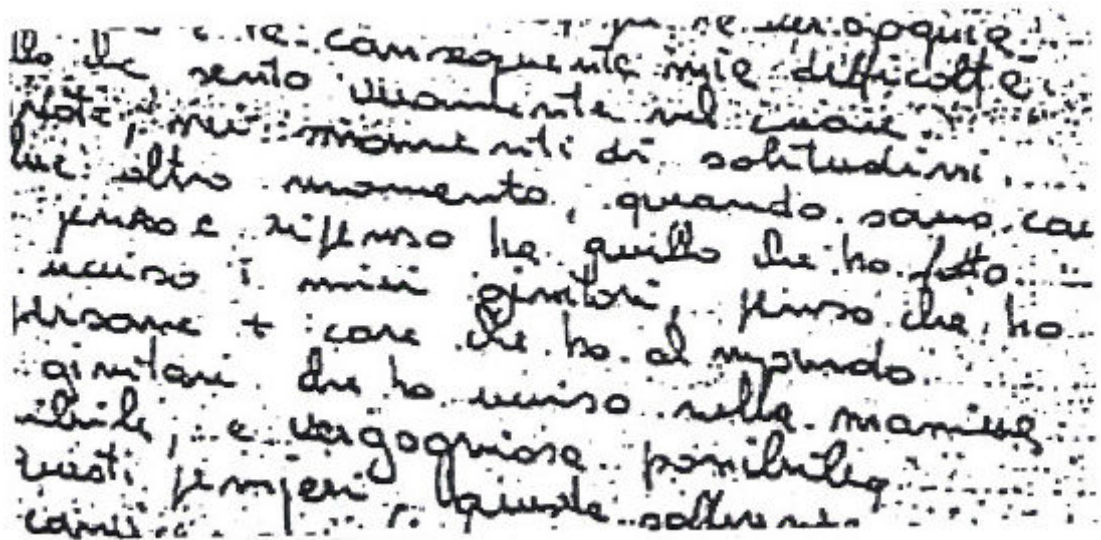 la conseguente mie difficoltà.
llo che sento veramente nel cuore.
notte, nei momenti di solitudini
altro momento, quando sono
penso e rifenso ha quello che ho fatto
ucciso i miei genitori, penso che ho
persone + care che ho al mondo.
genitori che ho ucciso nella maniera
ibile, e vergogniosa possibile
questi pensieri queste